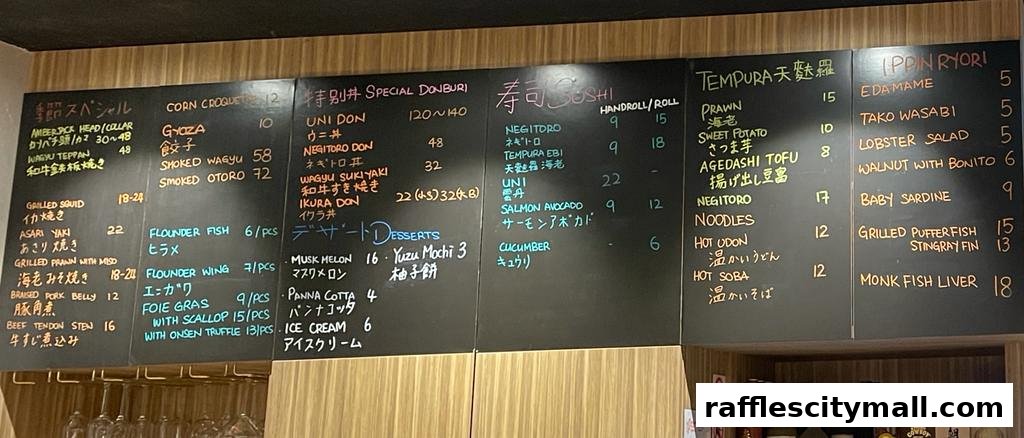 季節スペシャル
AMBERJACK HEAD/COLLAR
カンパチ頭/カマ 30~48
WAGYU TEPPAN 48
和牛鉄板焼き
GRILLED SQUID 18-24
イカ焼き
ASARI YAKI 22
あさり焼き
GRILLED PRAWN WITH MISO
海老みそ焼き 18-24
BRAISED PORK BELLY 12
豚角煮
BEEF TENDON STEN 16
牛すじ煮込み
CORN CROQUETTE 12
GYOZA 10
餃子
SMOKED WAGYU 58
SMOKED OTORO 72
FLOUNDER FISH 6/PCS
ヒラメ
FLOUNDER WING 7/PCS
エンガワ
FOIE GRAS 9/PCS
WITH SCALLOP 15/PCS
WITH ONSEN TRUFFLE 13/PCS
特別丼 SPECIAL DONBURI
UNI DON 120~140
ウニ丼
NEGITORO DON 48
ネギトロ丼
WAGYU SUKIYAKI 32
和牛すき焼き
IKURA DON 22(小S) 32(大B)
イクラ丼
デザート DESSERTS
· MUSK MELON 16
マスクメロン
· YUZU MOCHI 3
柚子餅
· PANNA COTTA 4
パンナコッタ
· ICE CREAM 6
アイスクリーム
寿司 SUSHI
HANDROLL/ROLL
NEGITORO 9 15
ネギトロ
TEMPURA EBI 9 18
天麩羅海老
UNI 22 -
雲丹
SALMON AVOCADO 9 12
サーモンアボカド
CUCUMBER - 6
キュウリ
TEMPURA 天麩羅
PRAWN 15
海老
SWEET POTATO 10
さつま芋
AGEDASHI TOFU 8
揚げ出し豆富
NEGITORO 17
NOODLES
HOT UDON 12
温かいうどん
HOT SOBA 12
温かいそば
IPPIN RYORI
EDAMAME 5
TAKO WASABI 5
LOBSTER SALAD 5
WALNUT WITH BONITO 6
BABY SARDINE 9
GRILLED PUFFERFISH 15
STINGRAY FIN 13
MONK FISH LIVER 18
rafflescitymall.com